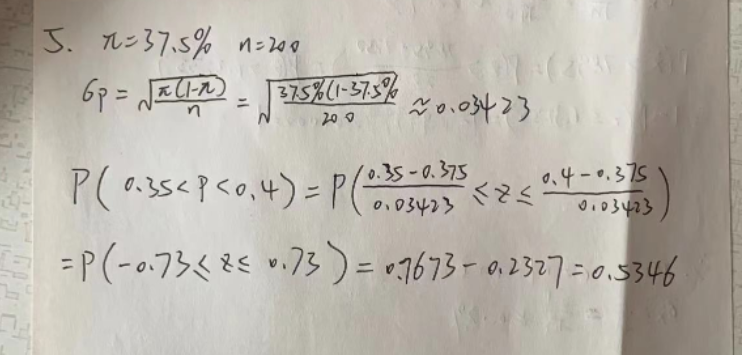 5. π=37.5% n=200
σp = √(π(1-π)/n) = √(37.5%(1-37.5%)/200) ≈ 0.03423
P( 0.35<P<0.4) = P( (0.35-0.375)/0.03423 ≤ z ≤ (0.4-0.375)/0.03423 )
=P(-0.73≤ z≤ 0.73) = 0.7673 - 0.2327 = 0.5346